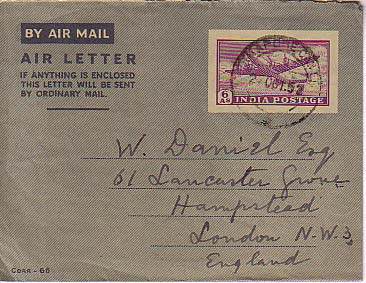 BY AIR MAIL
AIR LETTER
IF ANYTHING IS ENCLOSED
THIS LETTER WILL BE SENT
BY ORDINARY MAIL.
6 AS
INDIA POSTAGE
OCT. 52
W. Daniel Esq
61 Lancaster Grove
Hampstead
London N.W.3
England
CORR - 66